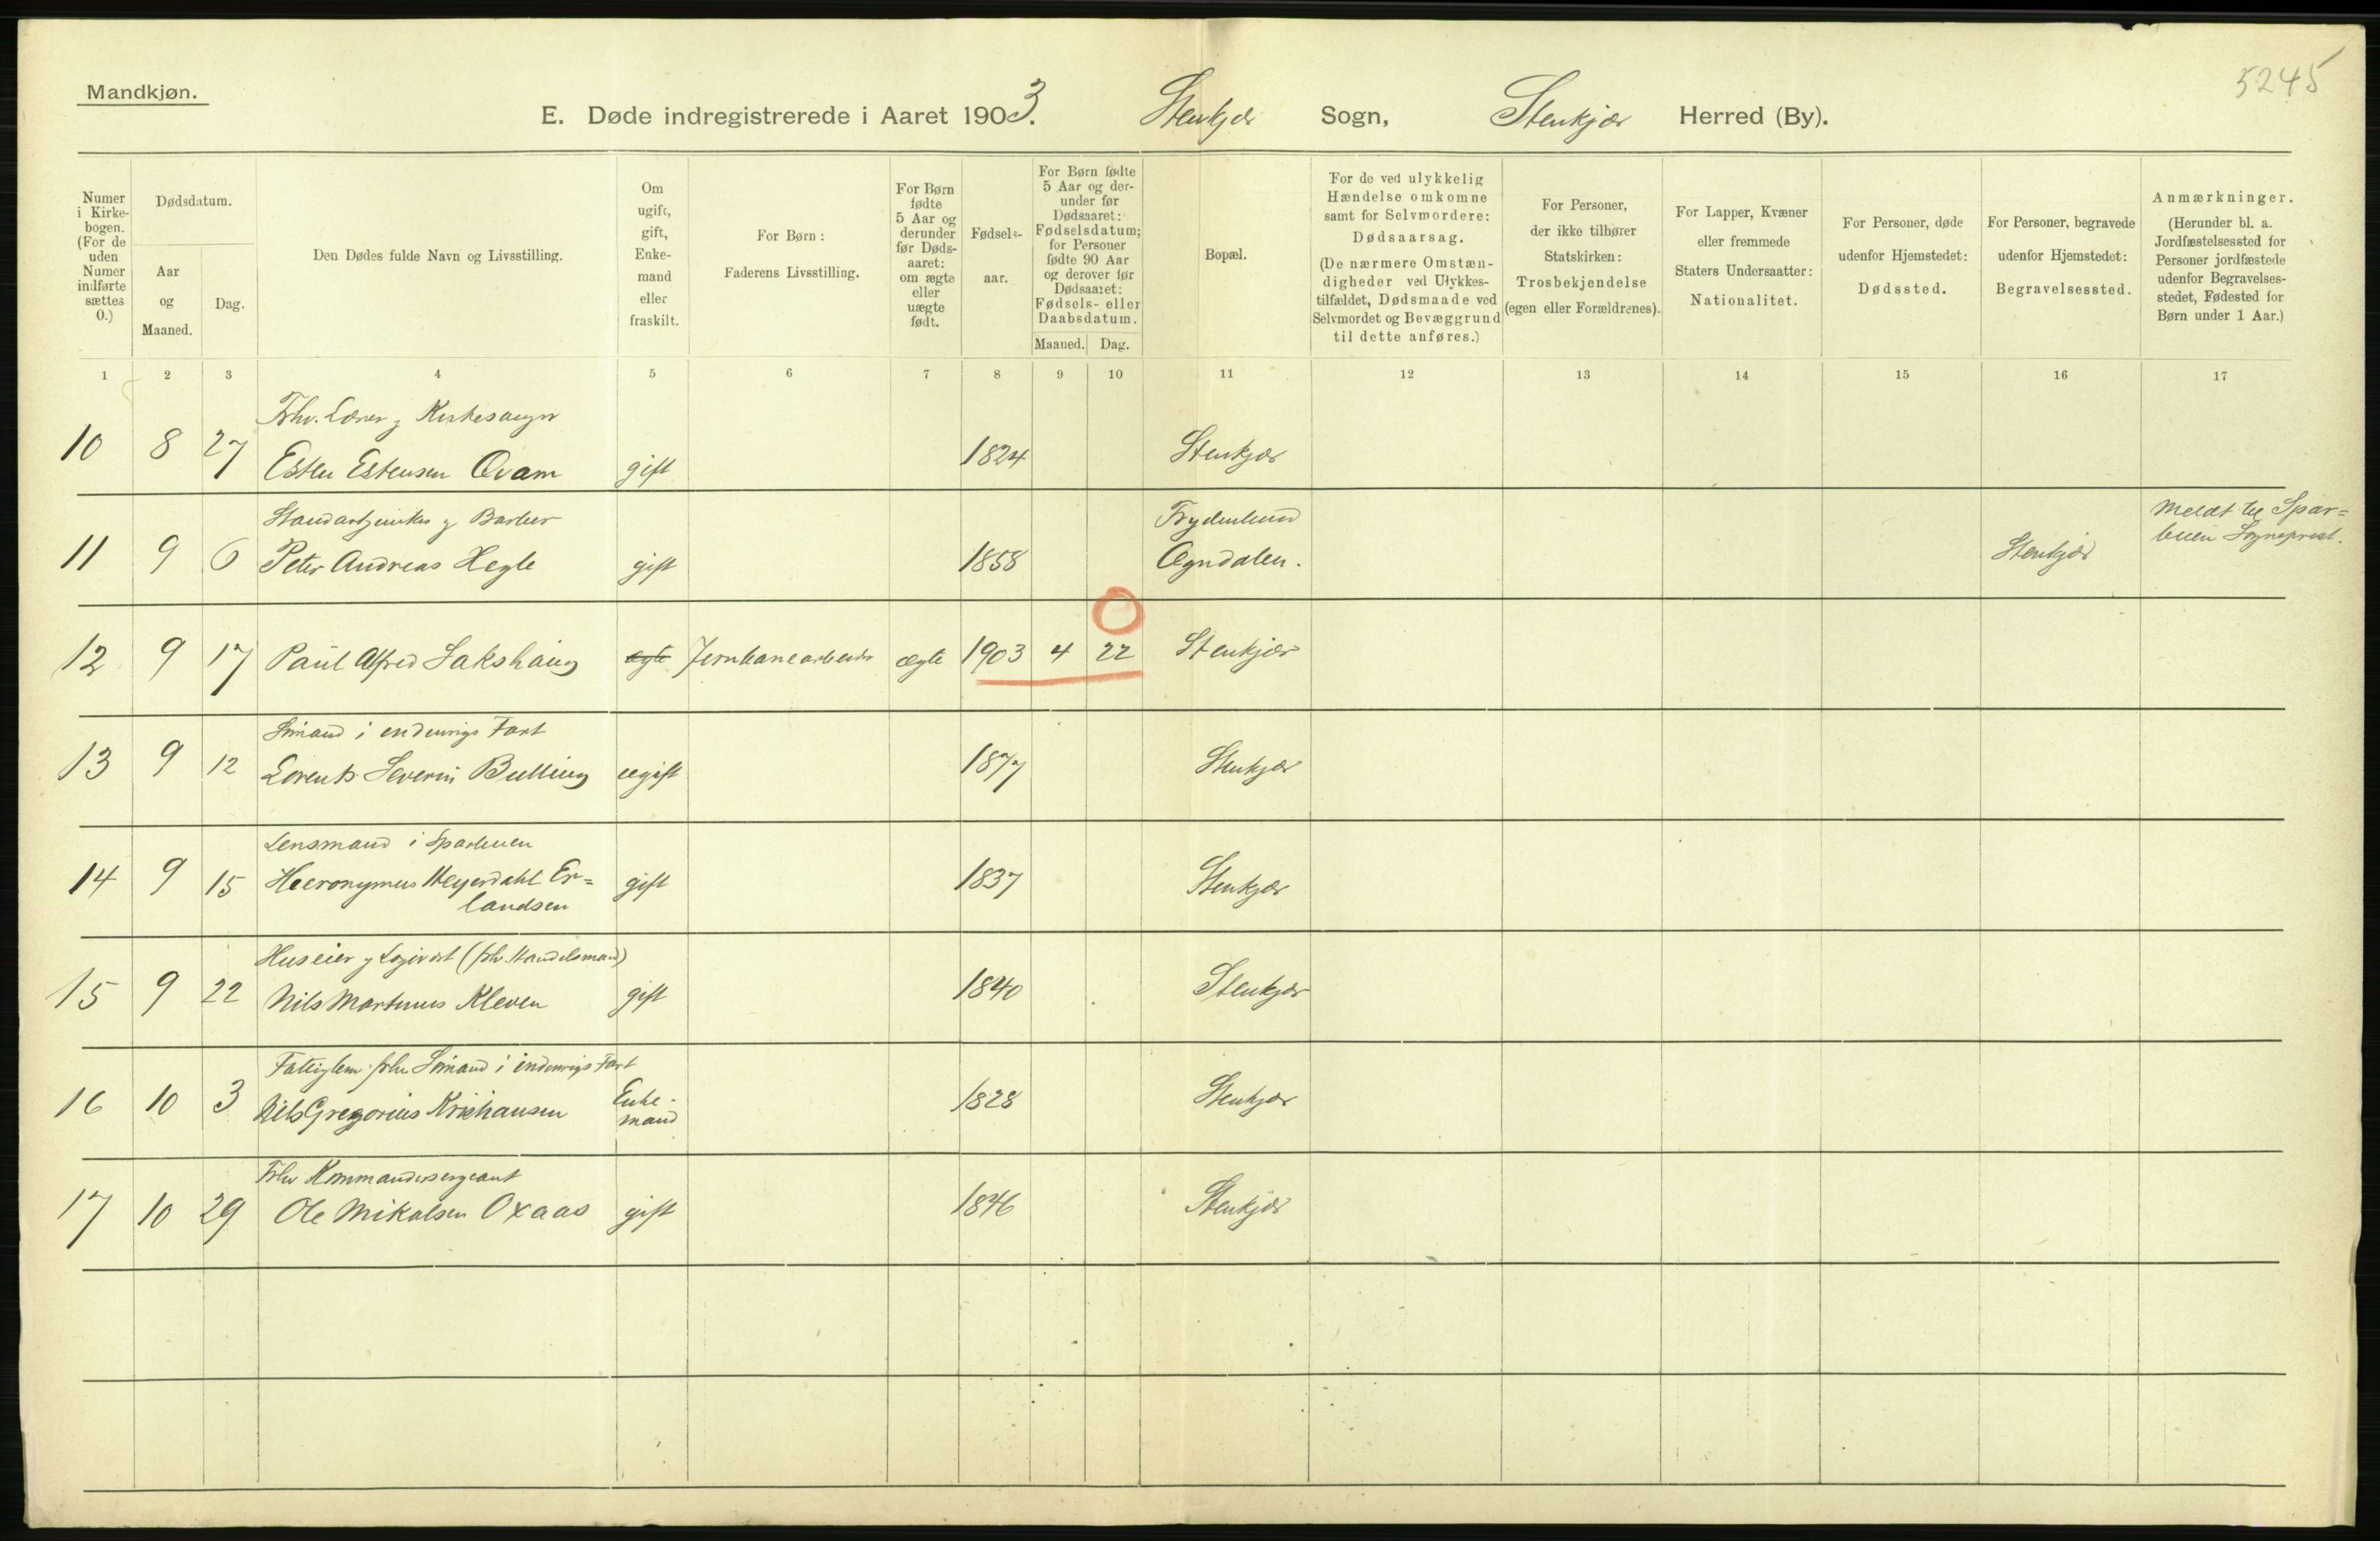 5245
Mandkjøn.
E. Døde indregistrerede i Aaret 1903. Stenkjær Sogn, Stenkjær Herred (By).
Numer i Kirkebogen. (For de uden Numer indførte sættes 0.)
Dødsdatum.
Aar og Maaned.
Dag.
Den Dødes fulde Navn og Livsstilling.
Om ugift, gift, Enkemand eller fraskilt.
For Børn: Faderens Livsstilling.
For Børn fødte 5 Aar og derunder før Dødsaaret: om ægte eller uægte født.
Fødselsaar.
For Børn fødte 5 Aar og derunder før Dødsaaret: Fødselsdatum; for Personer fødte 90 Aar og derover før Dødsaaret: Fødsels- eller Daabsdatum.
Maaned. Dag.
Bopæl.
For de ved ulykkelig Hændelse omkomne samt for Selvmordere: Dødsaarsag. (De nærmere Omstændigheder ved Ulykkestilfældet, Dødsmaade ved Selvmordet og Bevæggrund til dette anføres.)
For Personer, der ikke tilhører Statskirken: Trosbekjendelse (egen eller Forældrenes).
For Lapper, Kvæner eller fremmede Staters Undersaatter: Nationalitet.
For Personer, døde udenfor Hjemstedet: Dødssted.
For Personer, begravede udenfor Hjemstedet: Begravelsessted.
Anmærkninger. (Herunder bl. a. Jordfæstelsessted for Personer jordfæstede udenfor Begravelsesstedet, Fødested for Børn under 1 Aar.)
1 2 3 4 5 6 7 8 9 10 11 12 13 14 15 16 17
Fhv. Lærer og Kirkesanger
10 8 27 Esten Estensen Qvam gift 1824 Stenkjær
Standartjunker og Barber Frydenlund Meldt til Spar=
11 9 6 Peter Andreas Hegle gift 1858 Ogndalen. Stenkjær buen Sogneprest.
12 9 17 Paul Alfred Sakshaug ægte Jernbanearbeider ægte 1903 4 22 Stenkjær
Sømand i indenrigs Fart
13 9 12 Lorents Severin Bulling ugift 1877 Stenkjær
Lensmand i Sparbuen
14 9 15 Hieronymus Heyerdahl Er= gift 1837 Stenkjær
landsen
Huseier og Logivært (fhv. Handelsmand)
15 9 22 Nils Martinus Kleven gift 1840 Stenkjær
Fattiglem fhv. Sømand i indenrigs Fart
16 10 3 Nils Gregorius Kristiansen Enke-mand 1828 Stenkjær
Fhv Kommandersergeant
17 10 29 Ole Mikalsen Oxaas gift 1846 Stenkjær